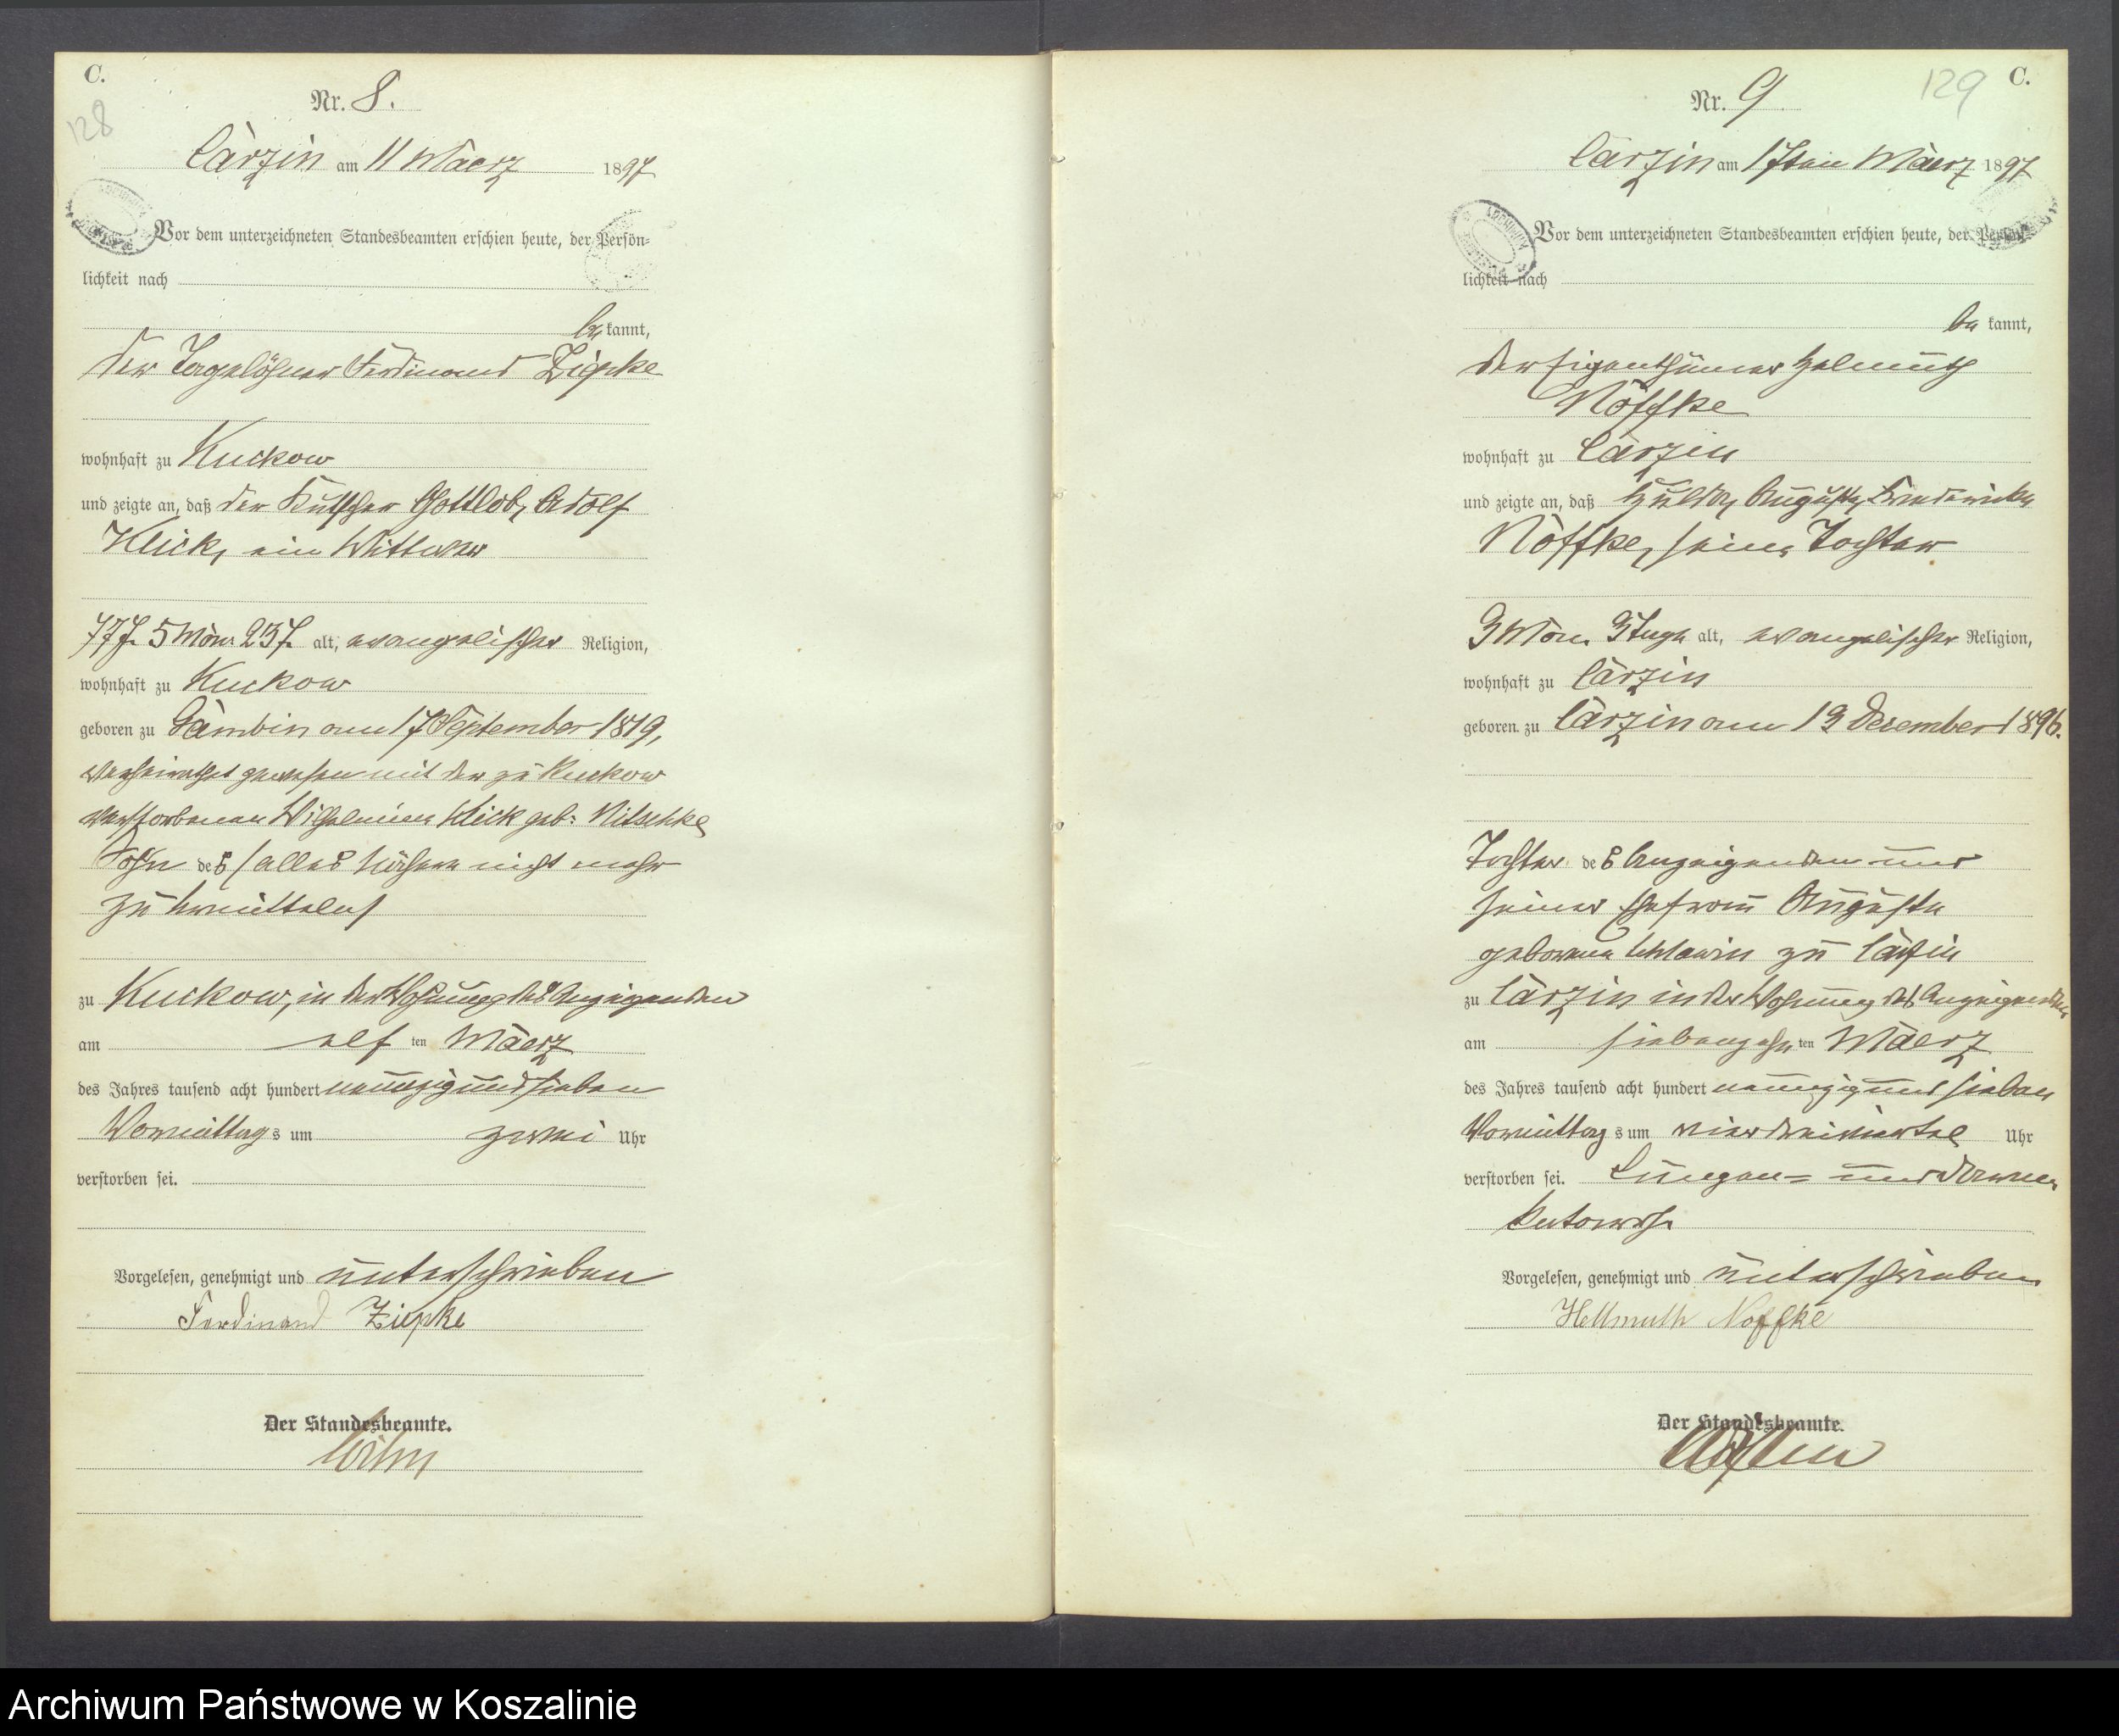 C.
128
Nr. 8.
Cärzin am 11 Maerz 1897
Vor dem unterzeichneten Standesbeamten erschien heute, der Persön-
lichkeit nach
be kannt,
der Tagelöhner Ferdinand Ziepke
wohnhaft zu Kuckow
und zeigte an, daß der Kutscher Gottlob, Adolf
Klick, ein Wittwer
77 J. 5 Mon. 23 T. alt, evangelischer Religion,
wohnhaft zu Kuckow
geboren zu Gambin am 17 September 1819,
verheirathet gewesen mit der zu Kuckow
verstorbenen Wilhelmine Klick geb: Nitschke
Sohn des /alles Nähere nicht mehr
zu ermitteln/
zu Kuckow, in der Wohnung des Anzeigenden
am elf ten Maerz
des Jahres tausend acht hundert neunzig und sieben
Vormittags um zwei Uhr
verstorben sei.
Vorgelesen, genehmigt und unterschrieben
Ferdinand Ziepke
Der Standesbeamte.
129
C.
Nr. 9
Cärzin am 17ten Maerz 1897
Vor dem unterzeichneten Standesbeamten erschien heute, der Persön-
lichkeit nach
be kannt,
der Eigenthümer Helmuth
Nöffke
wohnhaft zu Cärzin
und zeigte an, daß Hulda, Auguste, Friederike
Nöffke, seine Tochter
3 Mon. 3 Tage alt, evangelischer Religion,
wohnhaft zu Cärzin
geboren zu Cärzin am 13 Dezember 1896.
Tochter des Anzeigenden und
seiner Ehefrau Auguste
geborene zu Cärzin
zu Cärzin in der Wohnung des Anzeigenden
am siebenzehn ten Maerz
des Jahres tausend acht hundert neunzig und sieben
Vormittags um vier dreiviertel Uhr
verstorben sei. Lungen= und Darm
Katarrh
Vorgelesen, genehmigt und unterschrieben
Hellmuth Noffke
Der Standesbeamte.
Archiwum Państwowe w Koszalinie